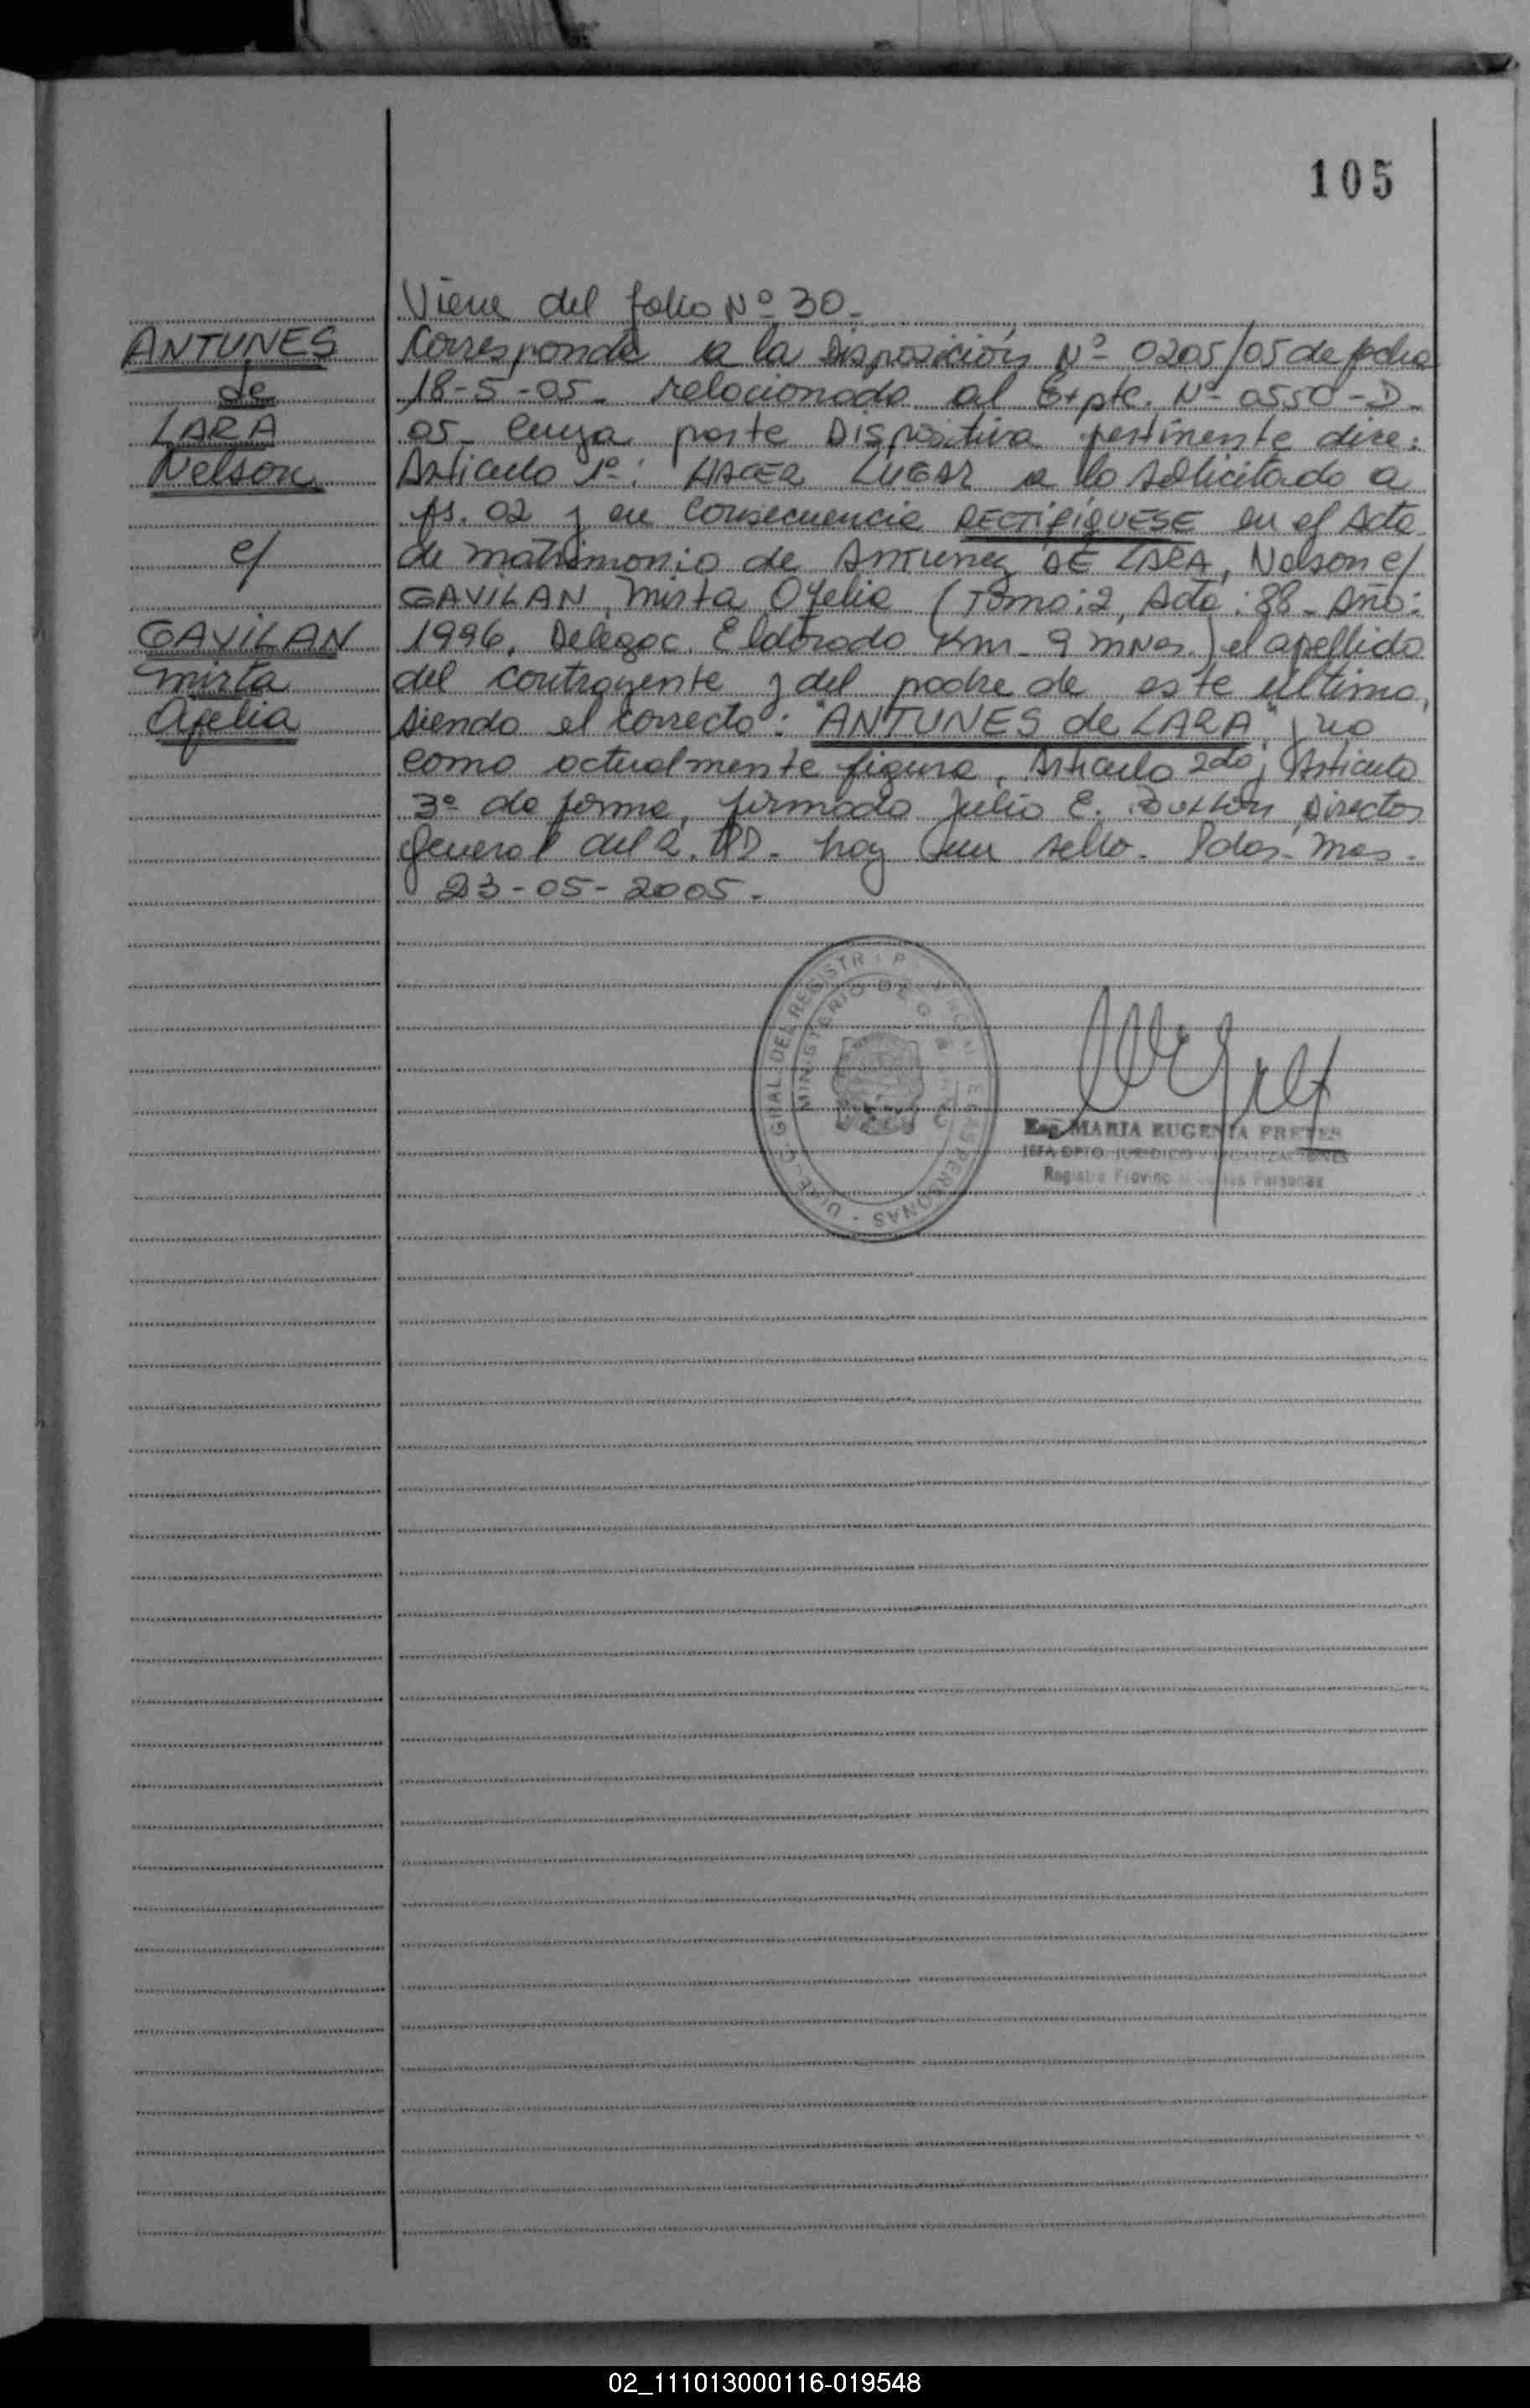 105
Viene del folio Nº 30.
ANTUNES
de
LARA
Nelson
c/
GAVILAN
Mirta
Ofelia
Corresponde a la Disposición Nº 0205/05 de fecha
18-5-05. relacionado al Expte. Nº 0550-D-
05- cuya parte Dispositiva pertinente dice:
Articulo 1º: HACER LUGAR a lo solicitado a
fs. 02 y en consecuencia RECTIFIQUESE en el Acta
de matrimonio de Antunez DE LARA, Nelson c/
GAVILAN, Mirta Ofelia (Tomo: 2, Acta: 88- Año:
1996, Delegac. Eldorado Km- 9 Mnes.) el apellido
del contrayente y del padre de este último,
siendo el correcto: "ANTUNES de LARA" y no
como actualmente figura, Articulo 2do y Articulo
3º de forma, firmado Julio E. Director
General del R.P.P. hay un sello. Pdas- Mnes-
23-05-2005.
DIREC. GRAL. DEL REGISTR. P DE LAS PERSONAS
MINISTERIO DE GOBIERNO
Esc. MARIA EUGENIA FRETES
JEFA DPTO. JURIDICO Y LEGALIZACIONES
Registro Provincial de las Personas
02_111013000116-019548